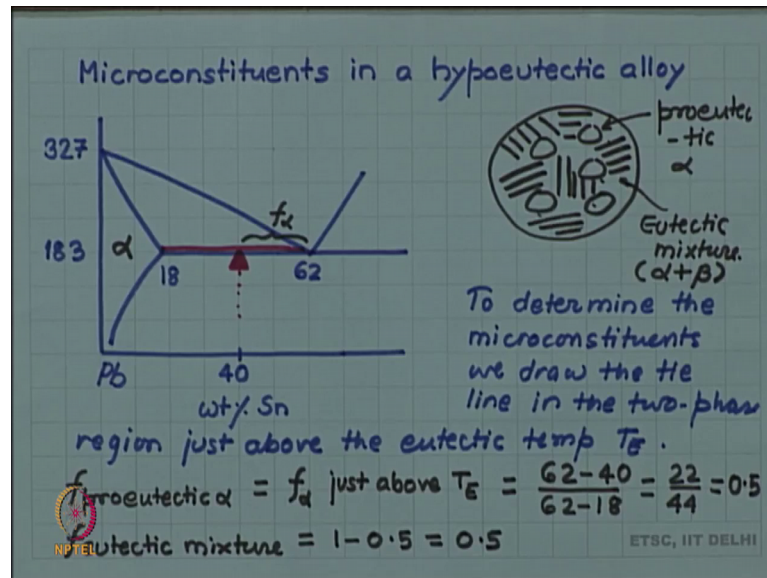 Microconstituents in a hypoeutectic alloy
327
183
α
fα
18
62
Pb
40
wt% Sn
proeutec
-tic
α
Eutectic
mixture
(α+β)
To determine the
microconstituents
we draw the tie
line in the two-phase
region just above the eutectic temp TE.
fproeutectic α = fα just above TE = 62-40/62-18 = 22/44 = 0.5
feutectic mixture = 1-0.5 = 0.5
NPTEL
ETSC, IIT DELHI